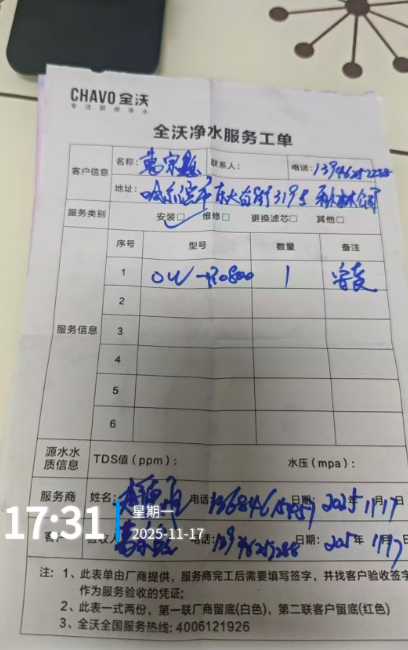 CHAVO 全沃
专注厨房净水
全沃净水服务工单
客户信息 名称： 联系人： 电话：
地址：哈尔滨市东大直街319号
服务类别 安装□ 维修□ 更换滤芯□ 其他□
序号 型号 数量 备注
服务信息
1 1 安装
2
3
4
5
6
源水水质信息 TDS值（ppm）： 水压（mpa）：
服务商 姓名： 电话 日期： 2025年11月17日
17:31 星期一 2025-11-17
客户 验收人 电话 日期： 2025年11月17日
注：1、此表单由厂商提供，服务商完工后需要填写签字，并找客户验收签字
作为服务验收的凭证；
2、此表一式两份，第一联厂商留底(白色)，第二联客户留底(红色)
3、全沃全国服务热线：4006121926